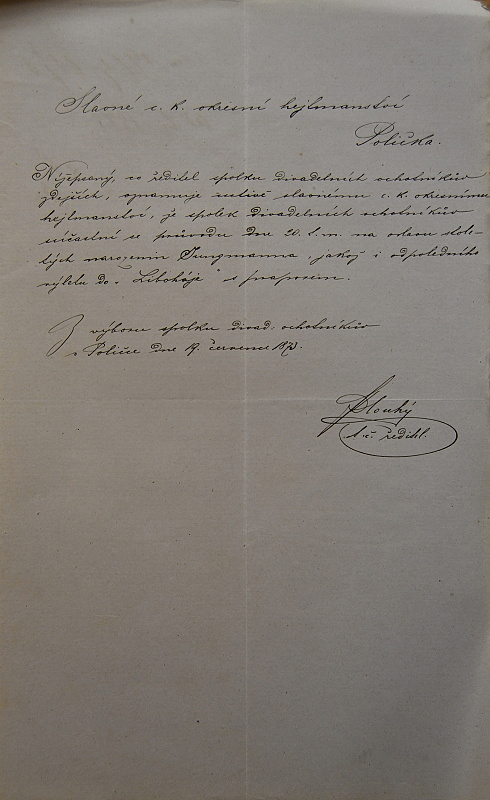 Slavné c. k. okresní hejtmanství
Polička.
Nížepsaný, co ředitel spolku divadelních ochotníkův
zdejších, oznamuje uctivě slavnému c. k. okresnímu
hejtmanství, že spolek divadelních ochotníkův
súčastní se průvodu dne 20. t. m. na oslavu stole-
tých narozenin Jungmanna, jakož i odpoledního
výletu do „Liboháje" s praporem.
Z výboru spolku divad. ochotníkův
v Poličce dne 19. července 1873.
Dlouhý
t. č. ředitel.